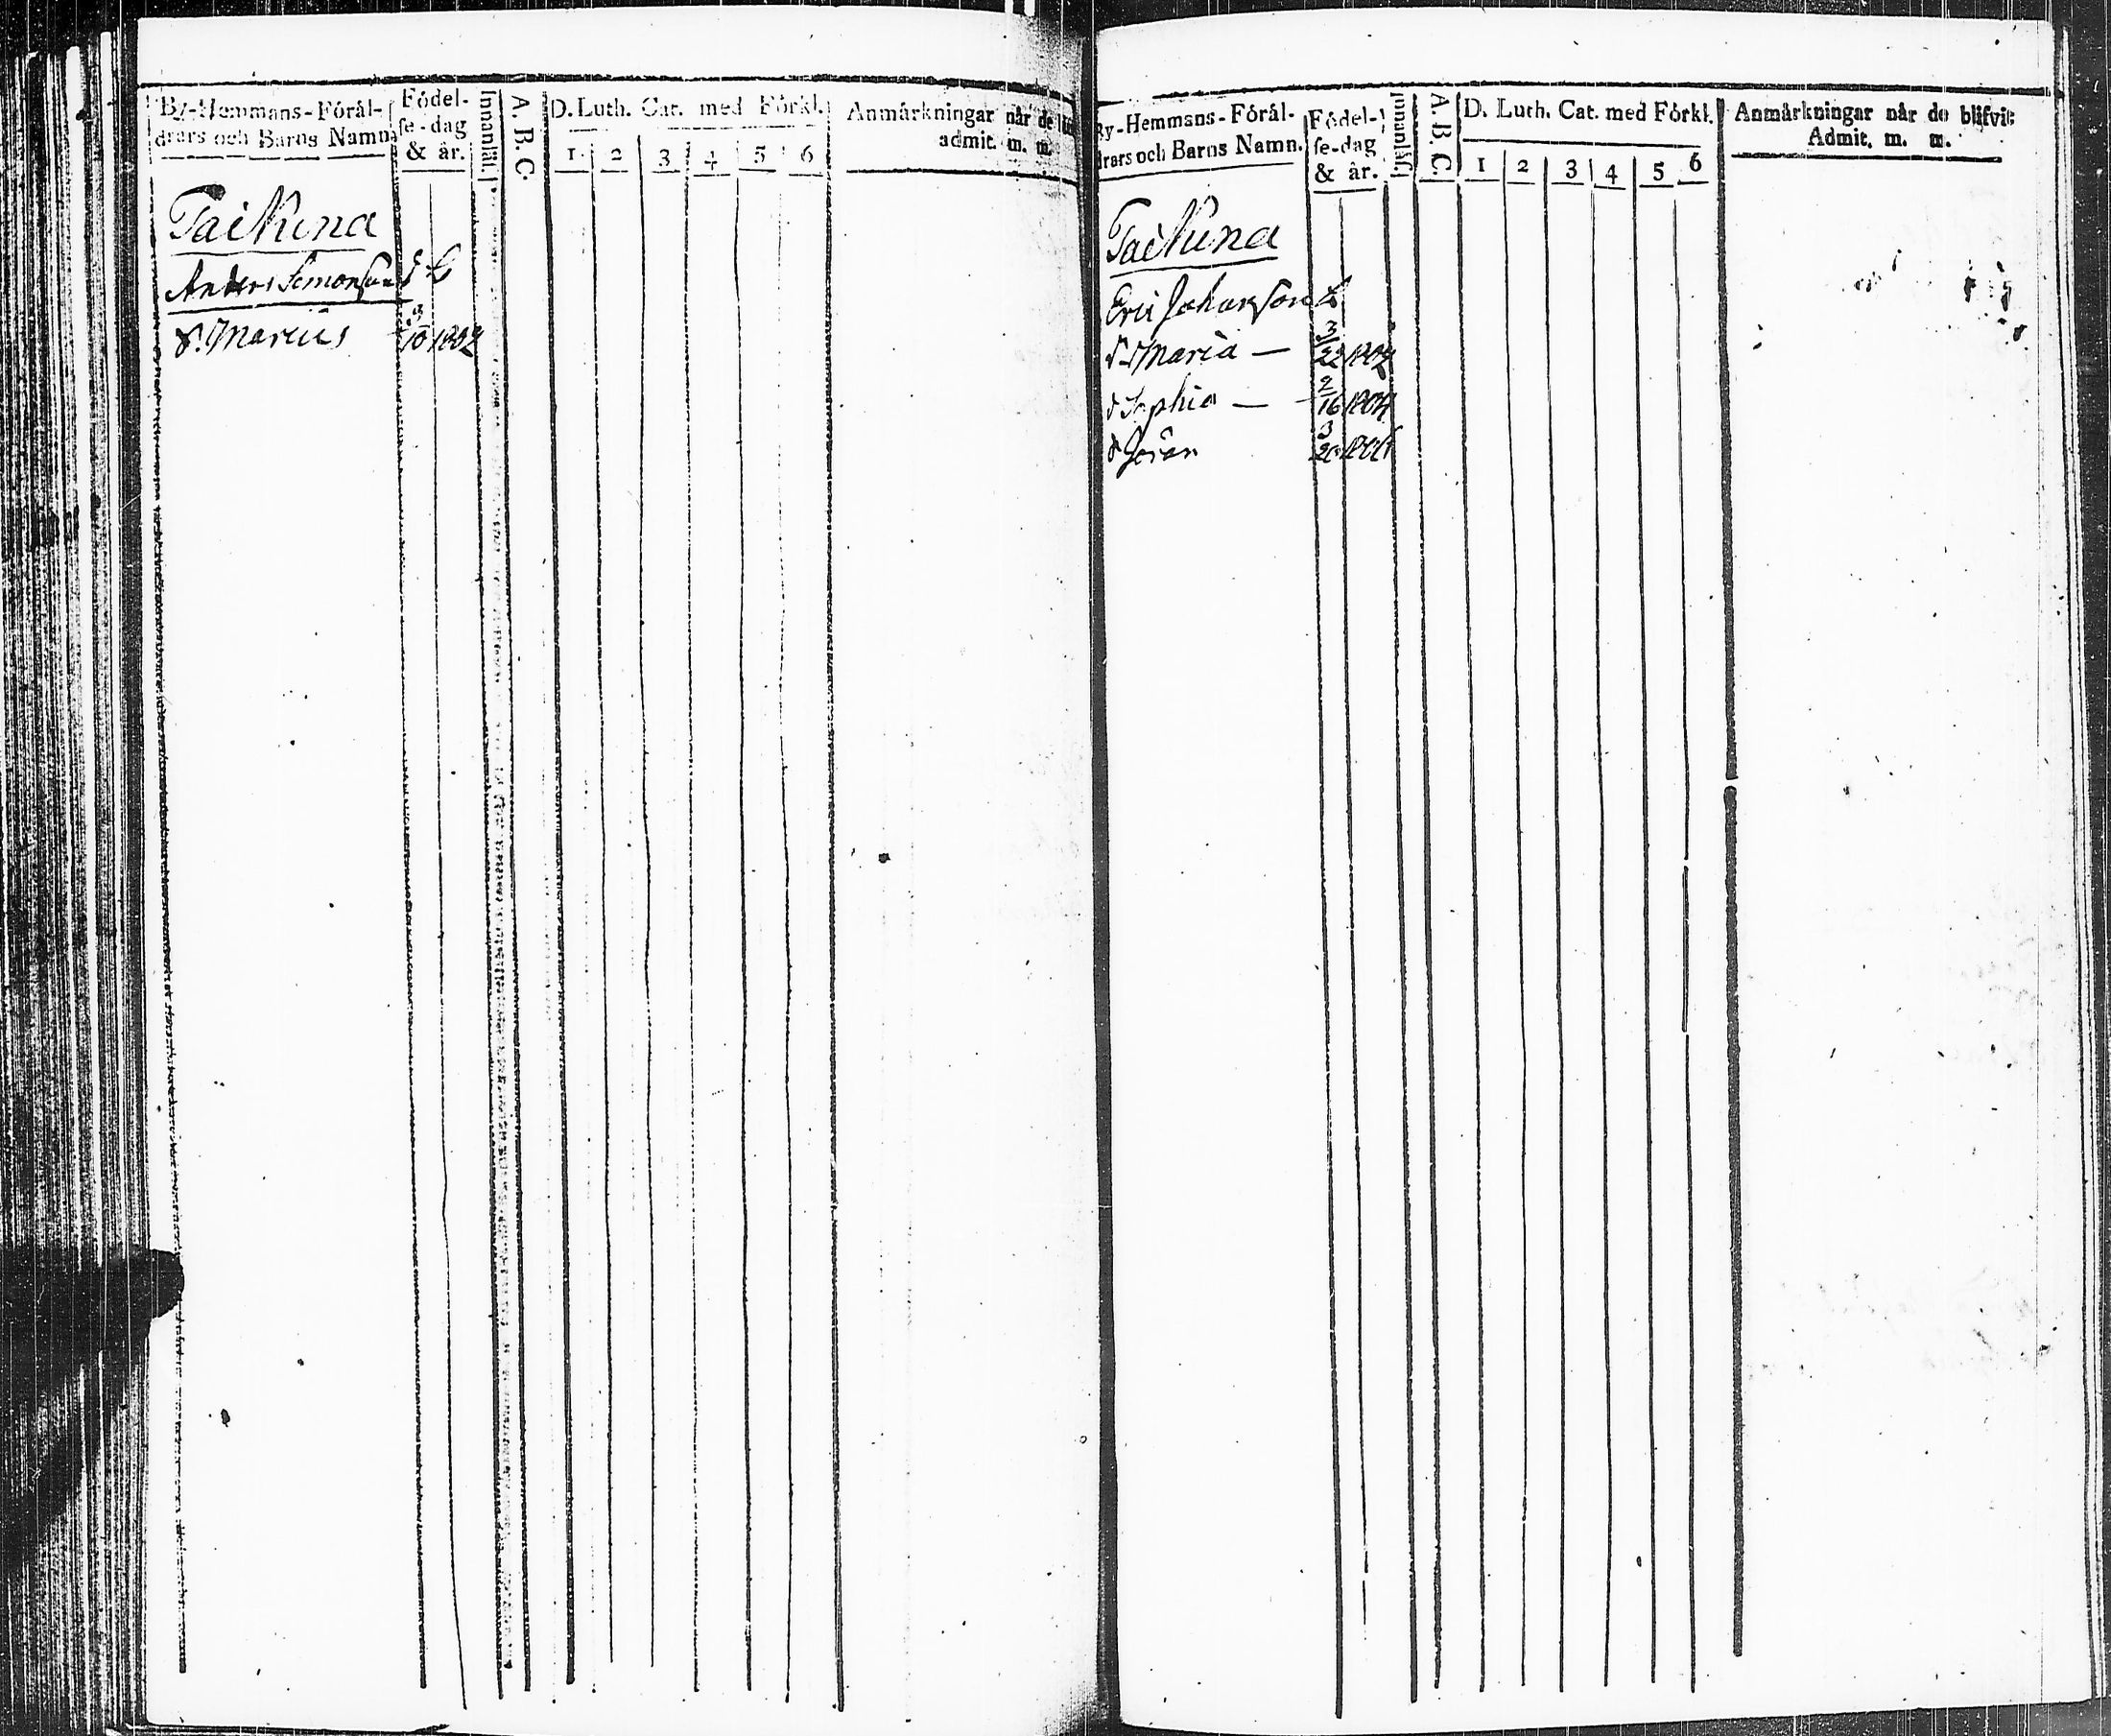 By-Hemmans-Förål-
drars och Barns Namn.
Födel-
se-dag
& år.
Innanläs.
A. B. C.
D. Luth. Cat. med Förkl.
1 2 3 4 5 6
Anmårkningar når de
admit. m. m.
Taikina
Anders Simonson
d. Marcus 3/10 1802
By-Hemmans-Förål-
drars och Barns Namn.
Födel-
se-dag
& år.
Innanläs.
A. B. C.
D. Luth. Cat. med Förkl.
1 2 3 4 5 6
Anmårkningar når de blifvit
Admit. m. m.
Taikina
Eric Johanson
d Maria — 3/22 1802
d Sophia — 2/16 1804
d Jöran 3/20 1806